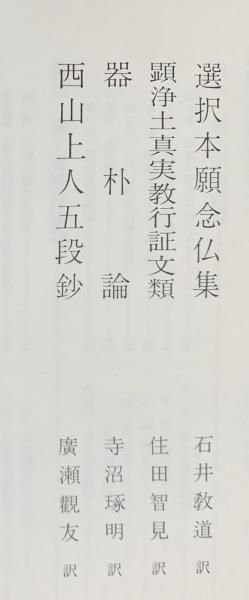 選択本願念仏集 石井教道 訳
顕浄土真実教行証文類 住田智見 訳
器朴論 寺沼琢明 訳
西山上人五段鈔 廣瀬觀友 訳